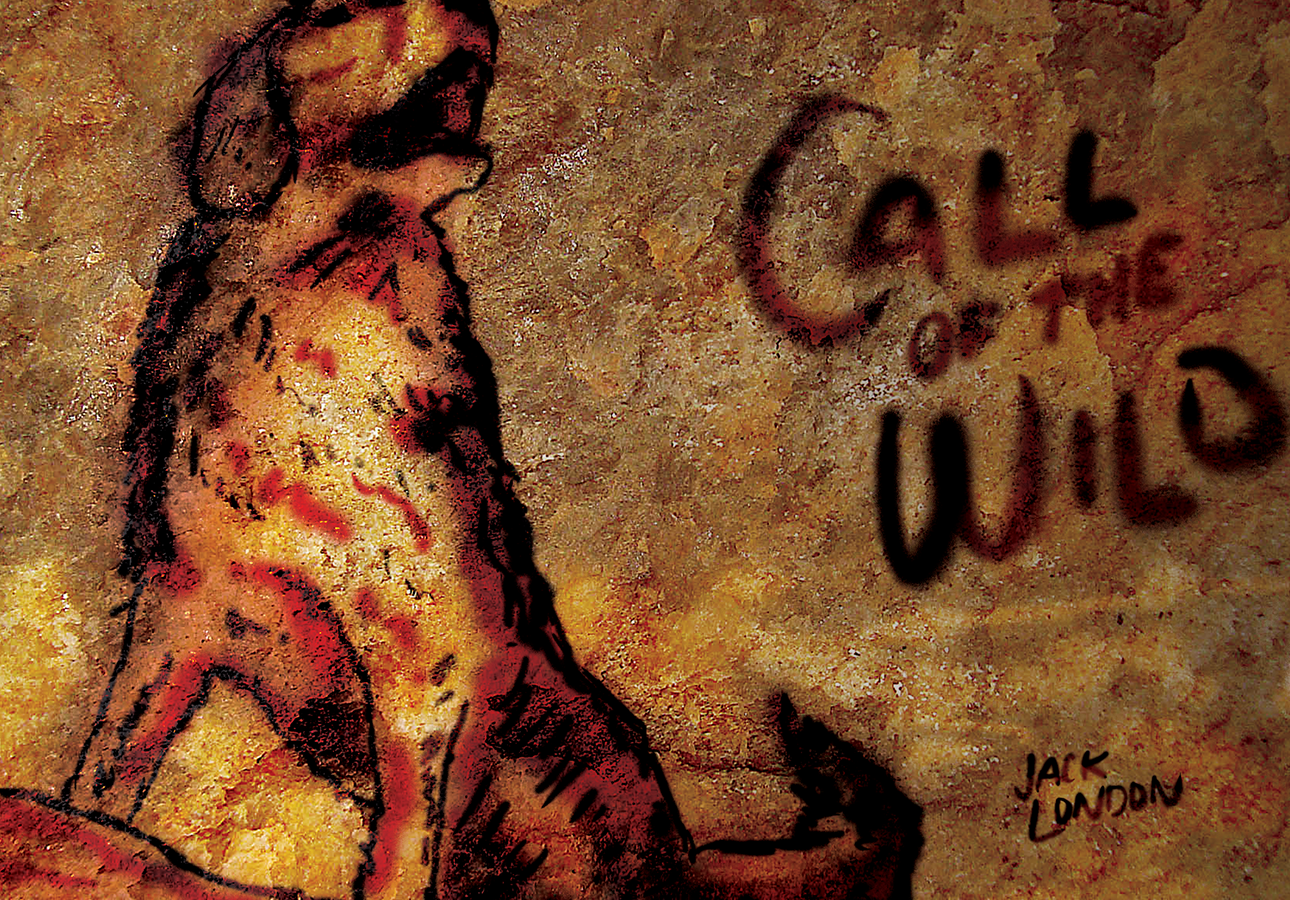 CALL
OF THE
WILD
JACK
LONDON